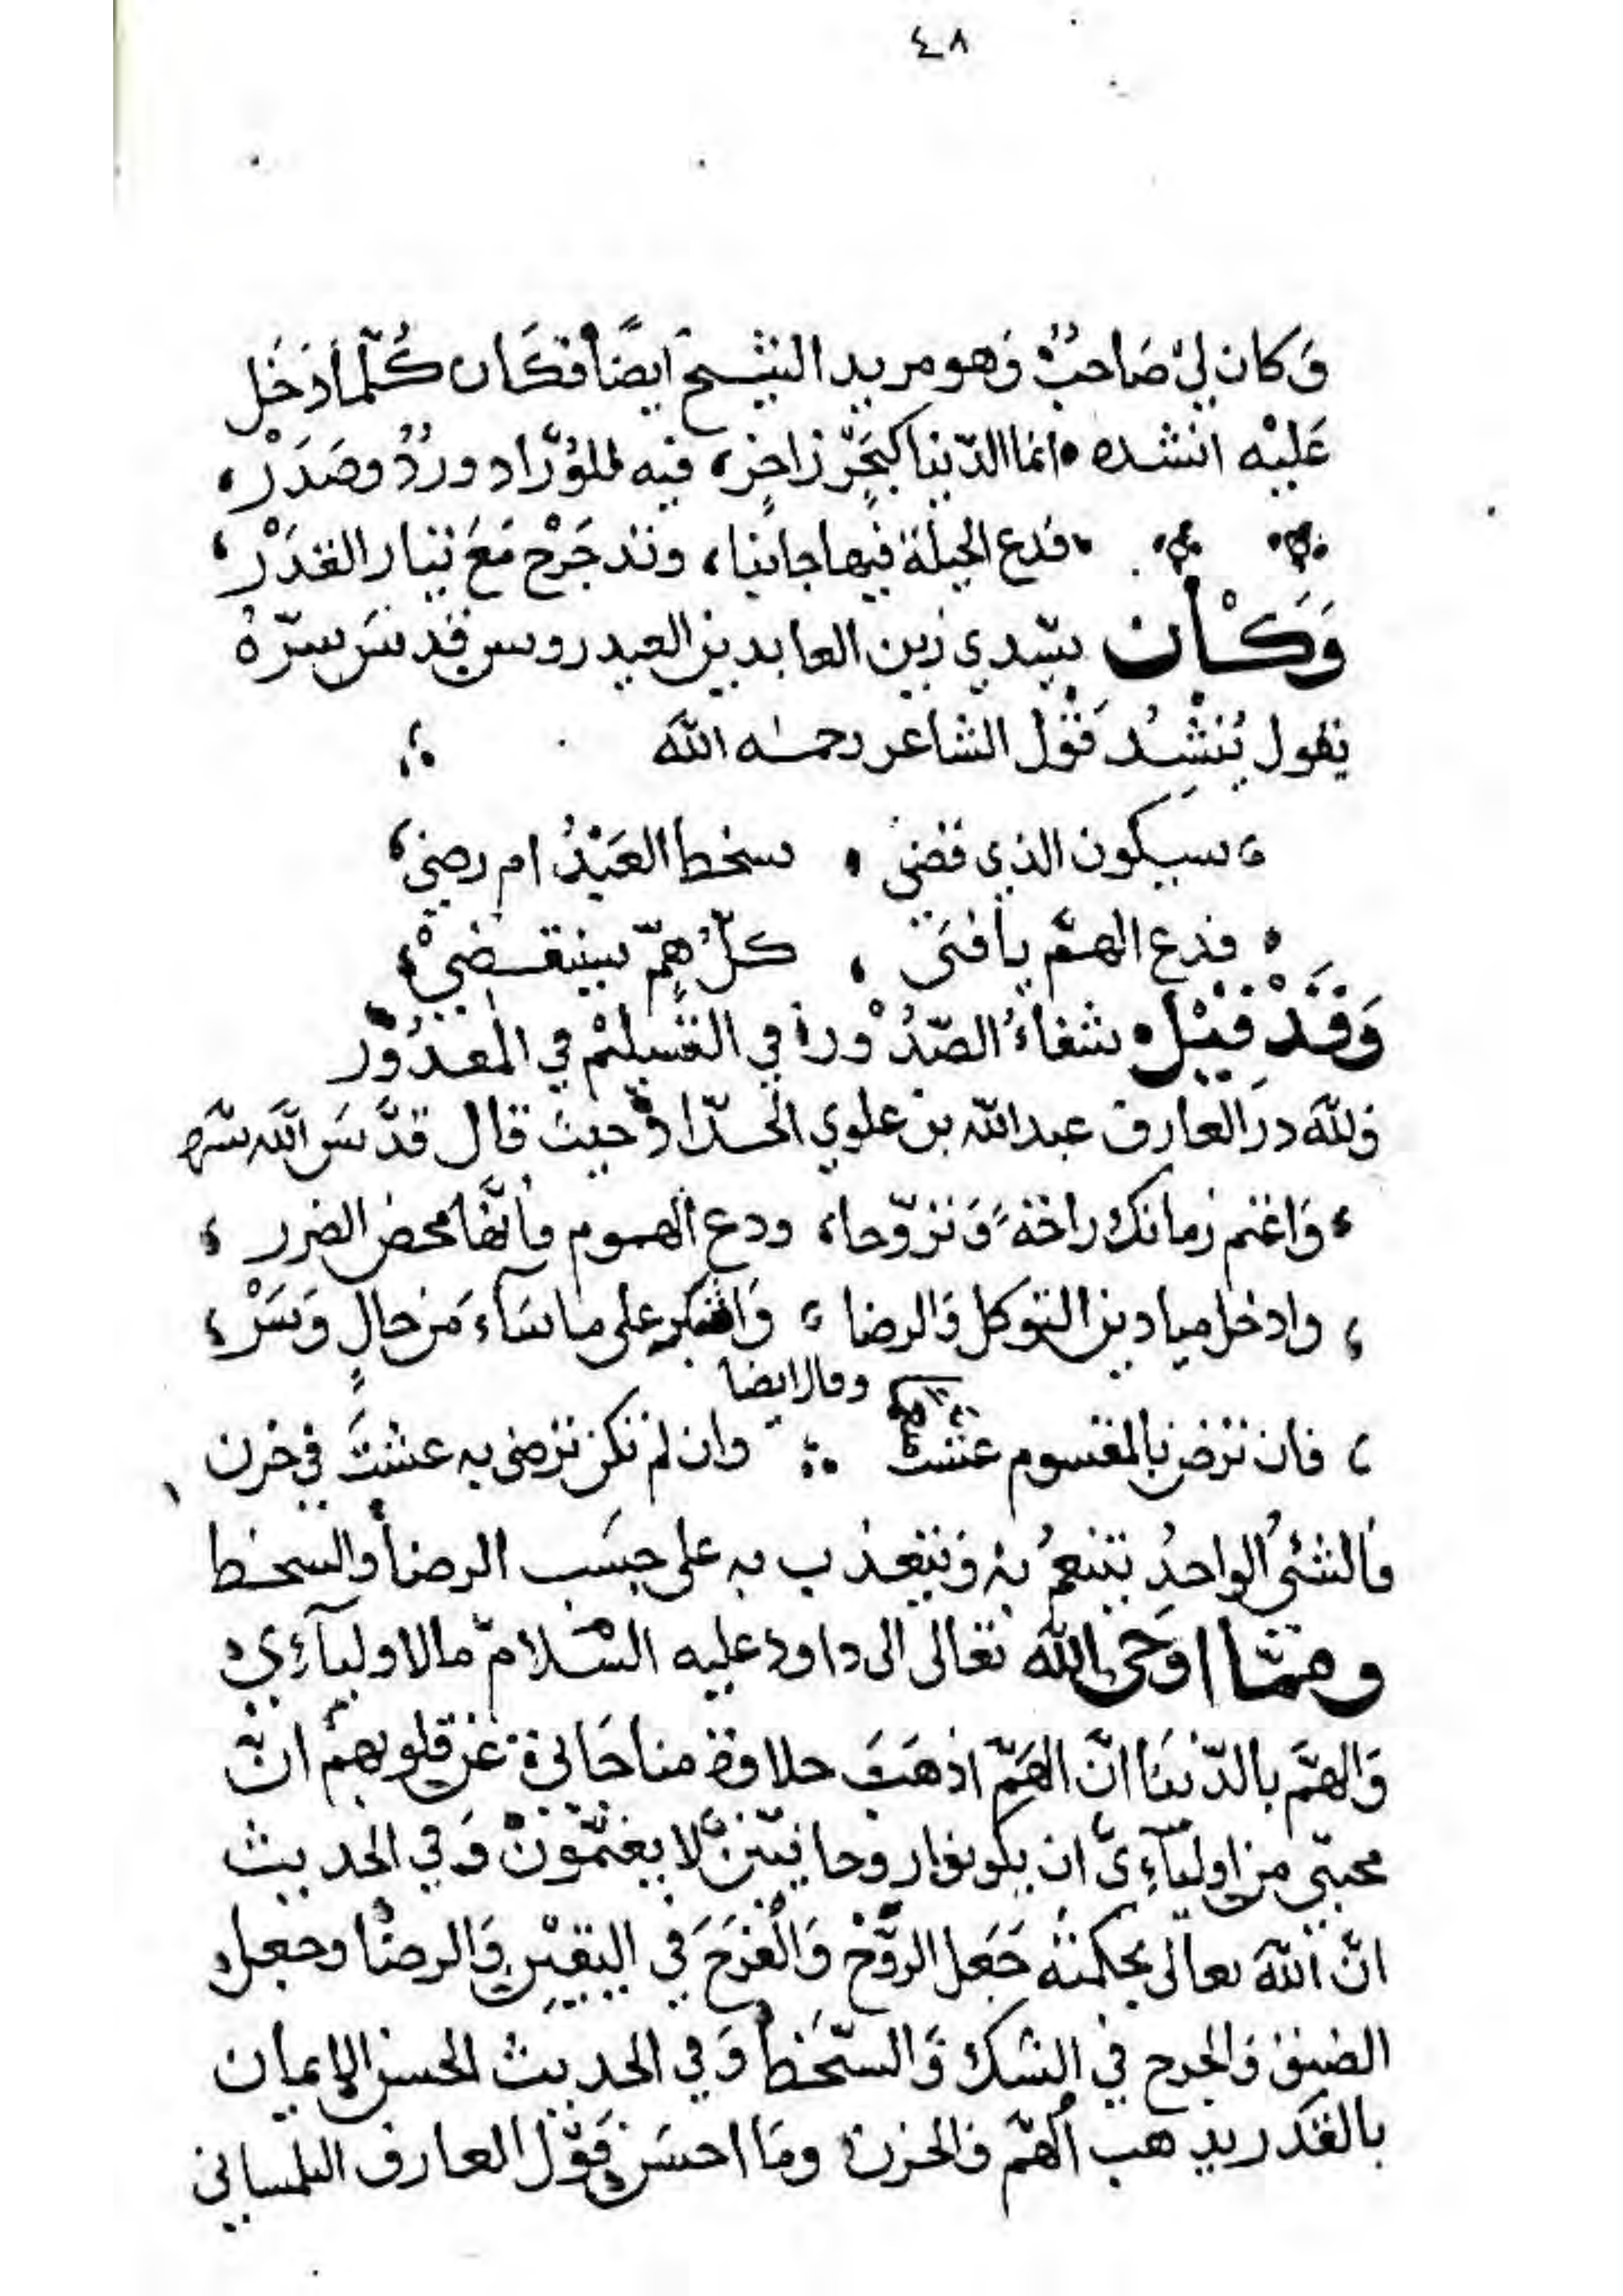 ٤٨
وَكان لي صَاحبٌ وَهو مريد الشيخ ايضًا فكَان كُلّما أدخَل
عَليْه انشده انما الدّنيا كبَحْرٍ زاخرٍ، فيه للوُرّاد وردٌ وصَدَرْ،
فدع الحيلة فيها جانبا، وتدحرَجْ مَعَ تيار القدَرْ،
وَكَان سيّدي زين العابدين العيدروس قدسَ سرّهُ
يقول يُنشِدُ قَوْل الشاعر رحمه الله
سيكون الذي قضي ، سخط العَبْدُ ام رضي،
فدع الهمّ يا فتى ، كلّ همّ سينقضيْ،
وَقَدْ قيْل شفاءُ الصّدُوْر في التسْليْم في المقدُوْر
ولله در العارف عبدالله بن علوي الحدّاد حيث قال قدّسَ الله سّره
وَاغنم زمانك راحةً وَتروّحا، ودعِ الهموم فانّها محض الضرر ،
، وادخل ميادين التوكل وَالرضا ، وَاشكر على ما سَاءَ مَن حالٍ وَسَرْ،
وقال ايضا
، فان ترض بالمقسوم عشت وان لم تكن ترضى به عشتَ في حزن
فالشئُ الواحدُ يتنعمُ بهِ وَيتعذب به على حسَب الرضا والسخط
وممّا اوحَى الله تعالى الى داود عليه السّلام ما لاوليآءِي
وَالهمَّ بالدّنيَا انّ الهَمّ اذهَبَ حلاوة مناجَاتي عن قلوبهمْ انّ
محبّتي من اوليآءِيَ ان يكونوا روحانيّينَ لا يغتمّونْ وَفي الحديث
انّ اللهَ تعالى بحكمته جَعَل الرَّوْحَ وَالْفرَحَ في اليقيْن وَالرضا وجعل
الضيق وَالحرج في الشك وَالسّخَط وَفي الحديث الحسن الإيمان
بالقَدَر يذهب الهمّ والحزن وَمَا احسَن قَوْل العارف التلمساني